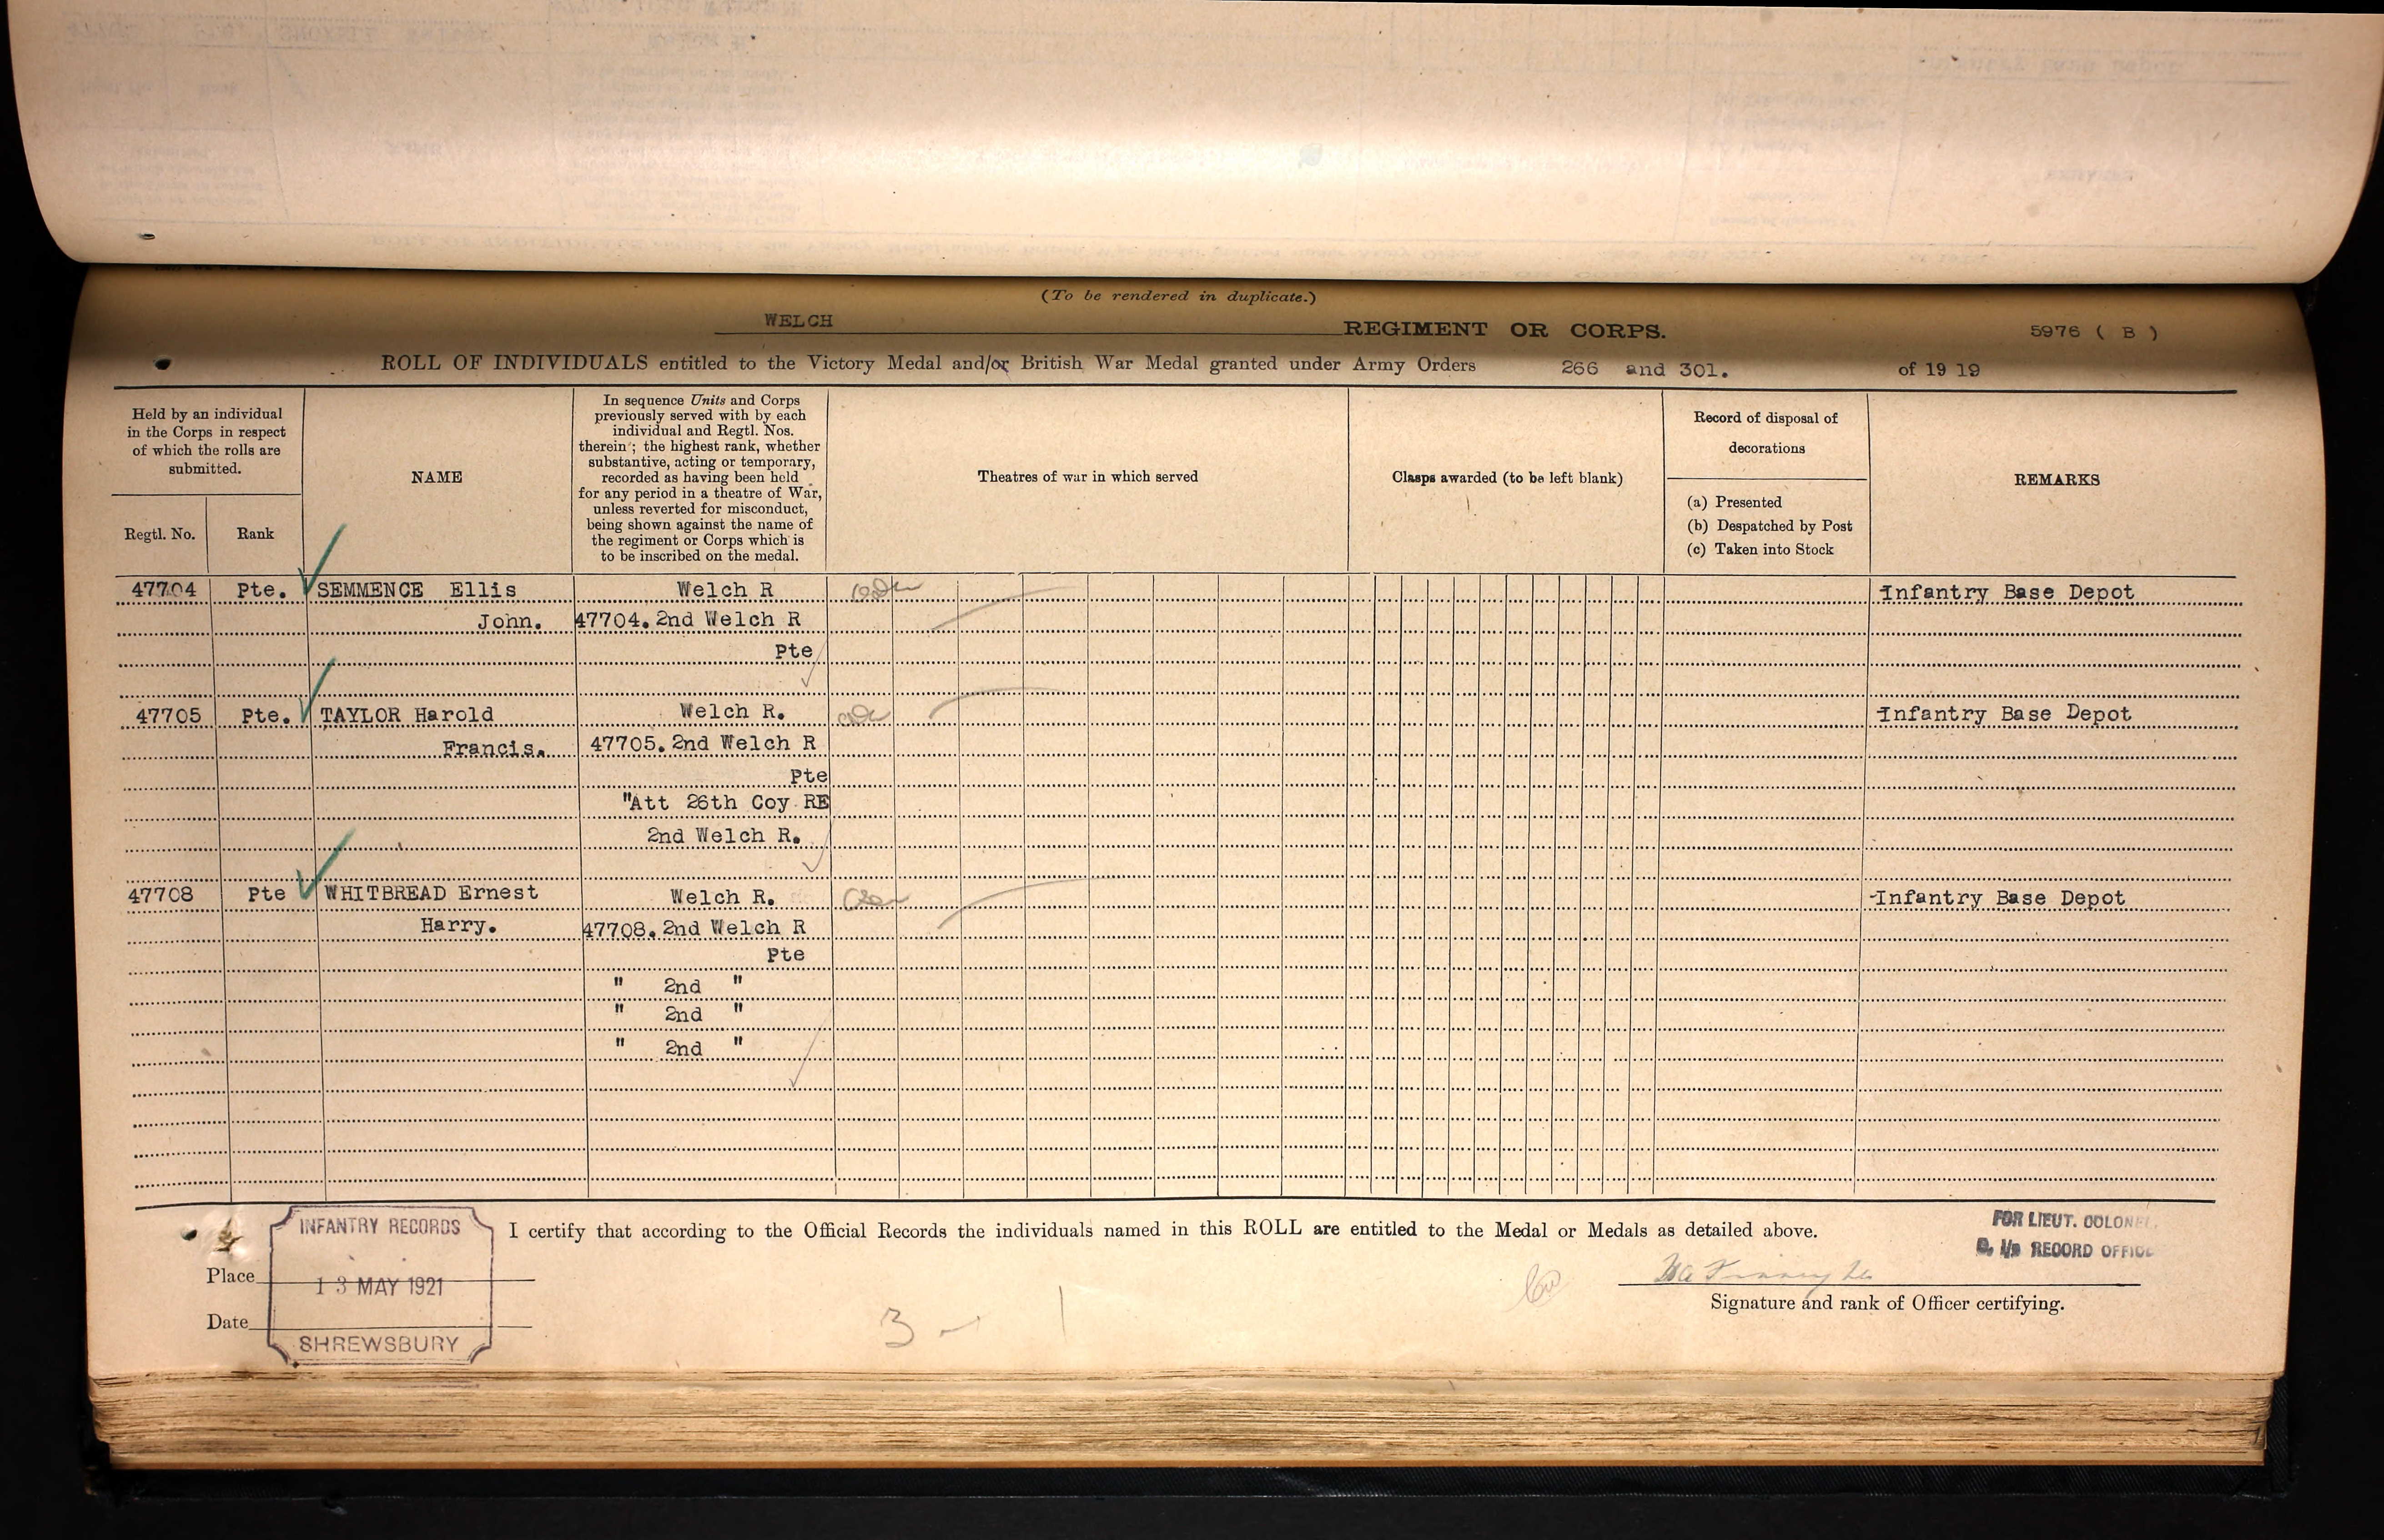 (To be rendered in duplicate.)
WELCH REGIMENT OR CORPS. 5976 ( B )
ROLL OF INDIVIDUALS entitled to the Victory Medal and/or British War Medal granted under Army Orders 266 and 301. of 19 19
Held by an individual
in the Corps in respect
of which the rolls are
submitted.
Regtl. No. Rank
NAME
In sequence Units and Corps
previously served with by each
individual and Regtl. Nos.
therein; the highest rank, whether
substantive, acting or temporary,
recorded as having been held
for any period in a theatre of War,
unless reverted for misconduct,
being shown against the name of
the regiment or Corps which is
to be inscribed on the medal.
Theatres of war in which served
Clasps awarded (to be left blank)
Record of disposal of
decorations
(a) Presented
(b) Despatched by Post
(c) Taken into Stock
REMARKS
47704 Pte. SEMMENCE Ellis Welch R Infantry Base Depot
John. 47704. 2nd Welch R
Pte
47705 Pte. TAYLOR Harold Welch R. Infantry Base Depot
Francis. 47705. 2nd Welch R
Pte
"Att 26th Coy RE
2nd Welch R.
47708 Pte WHITBREAD Ernest Welch R. Infantry Base Depot
Harry. 47708. 2nd Welch R
Pte
" 2nd "
" 2nd "
" 2nd "
I certify that according to the Official Records the individuals named in this ROLL are entitled to the Medal or Medals as detailed above.
FOR LIEUT. COLONEL.
I/c RECORD OFFICE
INFANTRY RECORDS
Place
13 MAY 1921
Date
SHREWSBURY
3
Signature and rank of Officer certifying.